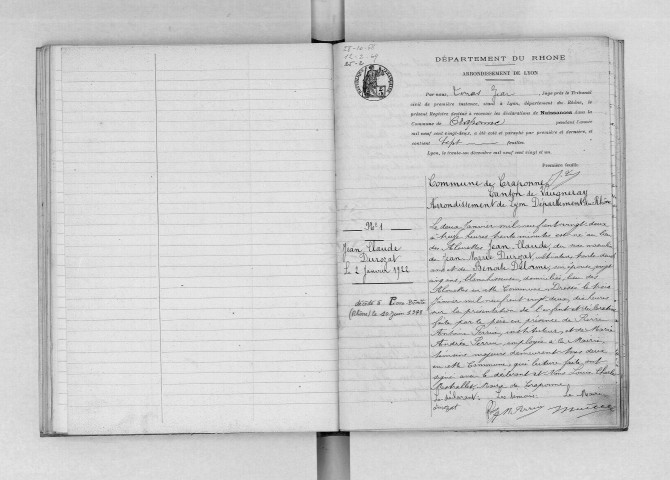 25-2
DÉPARTEMENT DU RHONE
ARRONDISSEMENT DE LYON
Par nous, Jean Juge près le Tribunal
civil de première instance, séant à Lyon, département du Rhône, le
présent Registre destiné à recevoir les déclarations de Naissances dans la
Commune de Craponne pendant l'année
mil neuf cent vingt-deux, a été coté et paraphé par première et dernière, et
contient sept feuilles.
Lyon, le trente-un décembre mil neuf cent vingt et un.
Première feuille
Commune de Craponne
Canton de Vaugneray
Arrondissement de Lyon Département du Rhône
N° 1
Jean Claude
Durozat
Le 2 Janvier 1922
décédé à Pierre-Bénite
(Rhône) le 20 Juin 1998
Le deux Janvier mil neuf cent vingt deux
à heures trente minutes est né au lieu
des Alouettes Jean Claude, du sexe masculin
de Jean Marie Durozat, trente deux
ans et de Benoîte Delorme, son épouse, vingt
ans, blanchisseuse, domiciliés lieu des
Alouettes en cette Commune. Dressé le trois
Janvier mil neuf cent vingt deux, dix heures
sur la présentation de l'enfant et déclaration
faite par le père en présence de Pierre
Antoine Perrin, instituteur, et de Marie
Andrée Perrin employée à la Mairie
témoins majeurs demeurant tous deux
en cette Commune, qui lecture faite, ont
signé avec le déclarant et Nous Louis
Maire de Craponne
Le déclarant, Les témoins Le Maire
Durozat Perrin